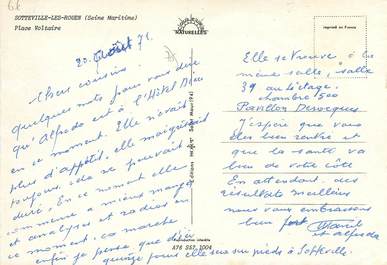 SOTTEVILLE-LES-ROUEN (Seine Maritime)
Place Voltaire
COULEURS NATURELLES
imprimé en France
20 Août 71.
Chers cousins.
quelques mots pour vous dire
qu'Alfreda est à l'Hôtel Dieu
en ce moment. Elle n'avait
plus d'appétit, elle maigrissait
ça ne pouvait
durer. En ce moment elle
commence a mieux manger
et analyses et radios en
ce moment, ça marche
enfin je pense que d'ici
quinze jours elle sera sur pieds à Sotteville.
Elle se trouve à la
même salle, salle
39 au 1er étage,
chambre 500
Pavillon Derocques
J'espère que vous
êtes bien rentré et
que la santé va
bien de votre côté
En attendant des
résultats meilleurs
nous vous embrassons
bien fort
et Alfreda
Reproduction interdite
A76 557 1004